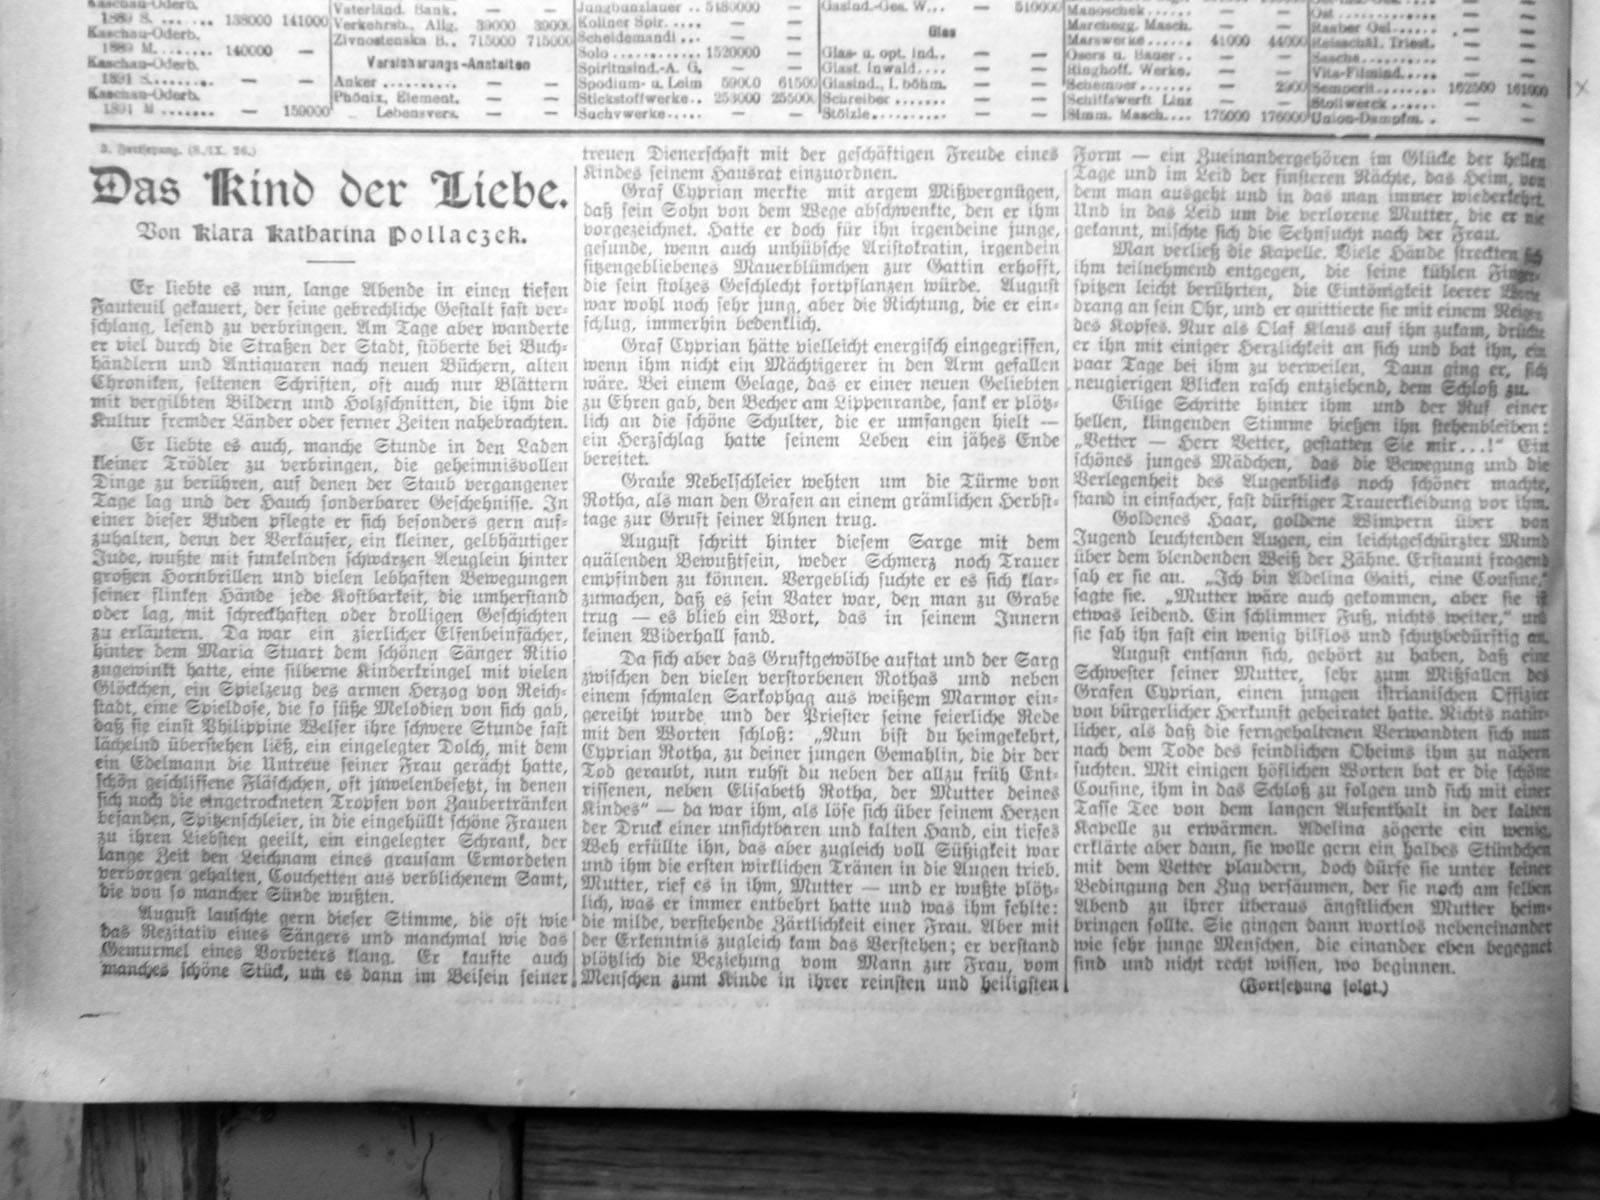 Kaschau-Oderb.
1889 S. ....... 138000 141000
Kaschau-Oderb.
1889 M........ 140000 —
Kaschau-Oderb.
1891 S........ — —
Kaschau-Oderb.
1891 M ....... — 150000
Vaterländ. Bank. — —
Verkehrsb., Allg. 39000 39000
Zivnostenska B.. 715000 715000
Versicherungs-Anstalten
Anker .......... — —
Phönix, Element. — —
Lebensvers. — —
Jungbunzlauer .. 5180000 —
Koliner Spir. .... — —
Scheidemandl ... — —
Solo ........... 1520000 —
Spiritusind.-A. G. — —
Spodium- u. Leim 59000 61500
Stickstoffwerke.. 253000 255000
Suchywerke..... — —
Gasind.-Ges. W... — 510000
Glas
Glas- u. opt. Ind.. — —
Glasf. Inwald.... — —
Glasind., I. böhm. — —
Schreiber ....... — —
Stölzle.......... — —
Manoschek...... — —
Marchegg. Masch. — —
Marswerke...... 41000 44000
Osers u. Bauer.. — —
Ringhoff. Werke. — —
Schember .......
Schiffswerft Linz — —
Simm. Masch.... 175000 176000
Raaber Oel...... — —
Reisschäl. Triest. — —
Sascha.......... — —
Vita-Filmind..... — —
Semperit........ 162500 161000
Stollwerck ...... — —
Union-Dampfm. . — —
3. Fortsetzung. (8./IX. 26.)
Das Kind der Liebe.
Von Klara Katharina Pollaczek.
Er liebte es nun, lange Abende in einen tiefen
Fauteuil gekauert, der seine gebrechliche Gestalt fast ver-
schlang, lesend zu verbringen. Am Tage aber wanderte
er viel durch die Straßen der Stadt, stöberte bei Buch-
händlern und Antiquaren nach neuen Büchern, alten
Chroniken, seltenen Schriften, oft auch nur Blättern
mit vergilbten Bildern und Holzschnitten, die ihm die
Kultur fremder Länder oder ferner Zeiten nahebrachten.
Er liebte es auch, manche Stunde in den Laden
kleiner Trödler zu verbringen, die geheimnisvollen
Dinge zu berühren, auf denen der Staub vergangener
Tage lag und der Hauch sonderbarer Geschehnisse. In
einer dieser Buden pflegte er sich besonders gern auf-
zuhalten, denn der Verkäufer, ein kleiner, gelbhäutiger
Jude, wußte mit funkelnden schwarzen Aeuglein hinter
großen Hornbrillen und vielen lebhaften Bewegungen
seiner flinken Hände jede Kostbarkeit, die umherstand
oder lag, mit schreckhaften oder drolligen Geschichten
zu erläutern. Da war ein zierlicher Elfenbeinfächer,
hinter dem Maria Stuart dem schönen Sänger Ritio
zugewinkt hatte, eine silberne Kinderkringel mit vielen
Glöckchen, ein Spielzeug des armen Herzog von Reich-
stadt, eine Spieldose, die so süße Melodien von sich gab,
daß sie einst Philippine Welser ihre schwere Stunde fast
lächelnd überstehen ließ, ein eingelegter Dolch, mit dem
ein Edelmann die Untreue seiner Frau gerächt hatte,
schön geschliffene Fläschchen, oft juwelenbesetzt, in denen
sich noch die eingetrockneten Tropfen von Zaubertränken
befanden, Spitzenschleier, in die eingehüllt schöne Frauen
zu ihren Liebsten geeilt, ein eingelegter Schrank, der
lange Zeit den Leichnam eines grausam Ermordeten
verborgen gehalten, Couchetten aus verblichenem Samt,
die von so mancher Sünde wußten.
August lauschte gern dieser Stimme, die oft wie
das Rezitativ eines Sängers und manchmal wie das
Gemurmel eines Vorbeters klang. Er kaufte auch
manches schöne Stück, um es dann im Beisein seiner
treuen Dienerschaft mit der geschäftigen Freude eines
Kindes seinem Hausrat einzuordnen.
Graf Cyprian merkte mit argem Mißvergnügen,
daß sein Sohn von dem Wege abschwenkte, den er ihm
vorgezeichnet. Hatte er doch für ihn irgendeine junge,
gesunde, wenn auch unhübsche Aristokratin, irgendein
sitzengebliebenes Mauerblümchen zur Gattin erhofft,
die sein stolzes Geschlecht fortpflanzen würde. August
war wohl noch sehr jung, aber die Richtung, die er ein-
schlug, immerhin bedenklich.
Graf Cyprian hätte vielleicht energisch eingegriffen,
wenn ihm nicht ein Mächtigerer in den Arm gefallen
wäre. Bei einem Gelage, das er einer neuen Geliebten
zu Ehren gab, den Becher am Lippenrande, sank er plötz-
lich an die schöne Schulter, die er umfangen hielt —
ein Herzschlag hatte seinem Leben ein jähes Ende
bereitet.
Graue Nebelschleier wehten um die Türme von
Rotha, als man den Grafen an einem grämlichen Herbst-
tage zur Gruft seiner Ahnen trug.
August schritt hinter diesem Sarge mit dem
quälenden Bewußtsein, weder Schmerz noch Trauer
empfinden zu können. Vergeblich suchte er es sich klar-
zumachen, daß es sein Vater war, den man zu Grabe
trug — es blieb ein Wort, das in seinem Innern
keinen Widerhall fand.
Da sich aber das Gruftgewölbe auftat und der Sarg
zwischen den vielen verstorbenen Rothas und neben
einem schmalen Sarkophag aus weißem Marmor ein-
gereiht wurde und der Priester seine feierliche Rede
mit den Worten schloß: „Nun bist du heimgekehrt,
Cyprian Rotha, zu deiner jungen Gemahlin, die dir der
Tod geraubt, nun ruhst du neben der allzu früh Ent-
rissenen, neben Elisabeth Rotha, der Mutter deines
Kindes“ — da war ihm, als löse sich über seinem Herzen
der Druck einer unsichtbaren und kalten Hand, ein tiefes
Weh erfüllte ihn, das aber zugleich voll Süßigkeit war
und ihm die ersten wirklichen Tränen in die Augen trieb.
Mutter, rief es in ihm, Mutter — und er wußte plötz-
lich, was er immer entbehrt hatte und was ihm fehlte:
die milde, verstehende Zärtlichkeit einer Frau. Aber mit
der Erkenntnis zugleich kam das Verstehen; er verstand
plötzlich die Beziehung vom Mann zur Frau, vom
Menschen zum Kinde in ihrer reinsten und heiligsten
Form — ein Zueinandergehören im Glücke der hellen
Tage und im Leid der finsteren Nächte, das Heim, von
dem man ausgeht und in das man immer wiederkehrt.
Und in das Leid um die verlorene Mutter, die er nie
gekannt, mischte sich die Sehnsucht nach der Frau.
Man verließ die Kapelle. Viele Hände streckten sich
ihm teilnehmend entgegen, die seine kühlen Finger-
spitzen leicht berührten, die Eintönigkeit leerer Worte
drang an sein Ohr, und er quittierte sie mit einem Neigen
des Kopfes. Nur als Olaf Klaus auf ihn zukam, drückte
er ihn mit einiger Herzlichkeit an sich und bat ihn, ein
paar Tage bei ihm zu verweilen. Dann ging er, sich
neugierigen Blicken rasch entziehend, dem Schloß zu.
Eilige Schritte hinter ihm und der Ruf einer
hellen, klingenden Stimme hießen ihn stehenbleiben:
„Vetter — Herr Vetter, gestatten Sie mir...!“ Ein
schönes junges Mädchen, das die Bewegung und die
Verlegenheit des Augenblicks noch schöner machte,
stand in einfacher, fast dürftiger Trauerkleidung vor ihm.
Goldenes Haar, goldene Wimpern über von
Jugend leuchtenden Augen, ein leichtgeschürzter Mund
über dem blendenden Weiß der Zähne. Erstaunt fragend
sah er sie an. „Ich bin Adelina Gaiti, eine Cousine,“
sagte sie. „Mutter wäre auch gekommen, aber sie ist
etwas leidend. Ein schlimmer Fuß, nichts weiter,“ und
sie sah ihn fast ein wenig hilflos und schutzbedürftig an.
August entsann sich, gehört zu haben, daß eine
Schwester seiner Mutter, sehr zum Mißfallen des
Grafen Cyprian, einen jungen istrianischen Offizier
von bürgerlicher Herkunft geheiratet hatte. Nichts natür-
licher, als daß die ferngehaltenen Verwandten sich nun
nach dem Tode des feindlichen Oheims ihm zu nähern
suchten. Mit einigen höflichen Worten bat er die schöne
Cousine, ihm in das Schloß zu folgen und sich mit einer
Tasse Tee von dem langen Aufenthalt in der kalten
Kapelle zu erwärmen. Adelina zögerte ein wenig,
erklärte aber dann, sie wolle gern ein halbes Stündchen
mit dem Vetter plaudern, doch dürfe sie unter keiner
Bedingung den Zug versäumen, der sie noch am selben
Abend zu ihrer überaus ängstlichen Mutter heim-
bringen sollte. Sie gingen dann wortlos nebeneinander
wie sehr junge Menschen, die einander eben begegnet
sind und nicht recht wissen, wo beginnen.
(Fortsetzung folgt.)